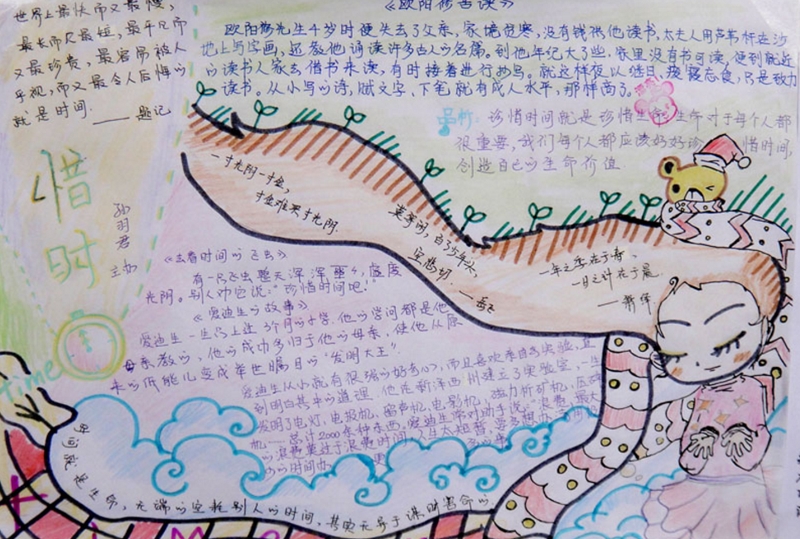 世界上最快而又最慢，
最长而又最短，最平凡而
又最珍贵，最容易被人
乎视，而又最令人后悔的
就是时间.
——题记
《欧阳修苦读》
欧阳修先生4岁时便失去了父亲，家境贫寒，没有钱供他读书，太夫人用芦苇杆在沙
地上写字画，还教他诵读许多古人的名篇。到他年纪大了些，家里没有书可读，便到就近
的读书人家去借书来读，有时接着进行抄写。就这样夜以继日，废寝忘食，只是致力
读书。从小写的诗，赋文字，下笔就有成人水平，那样高了。
赏析：珍惜时间就是珍惜生命，生命对于每个人都
很重要，我们每个人都应该好好珍惜时间，
创造自己的生命价值
惜时
主办
一寸光阴一寸金，
寸金难买寸光阴.
莫等闲，白了少年头，
空悲切.
——岳飞
一年之季在于春、
一日之计在于晨.
——萧绎
《去看时间的飞虫》
光阴。别人劝它说："珍惜时间吧！"
《爱迪生的故事》
爱迪生一生只上过3个月的小学，他的学问都是他
母亲教的，他的成功多归于他的母亲，使他从原
来的低能儿变成举世瞩目的"发明大王"
爱迪生从小就有很强的好奇心，而且喜欢亲自去实验，直
到明白其中的道理.他在新泽西州建立了实验室，一生
发明了电灯，电报机，留声机，电影机，磁力析矿机，压碎
机……总计2000余种东西.
time
时间就是生命，无端的空耗别人的时间，其实无异于谋财害命的.